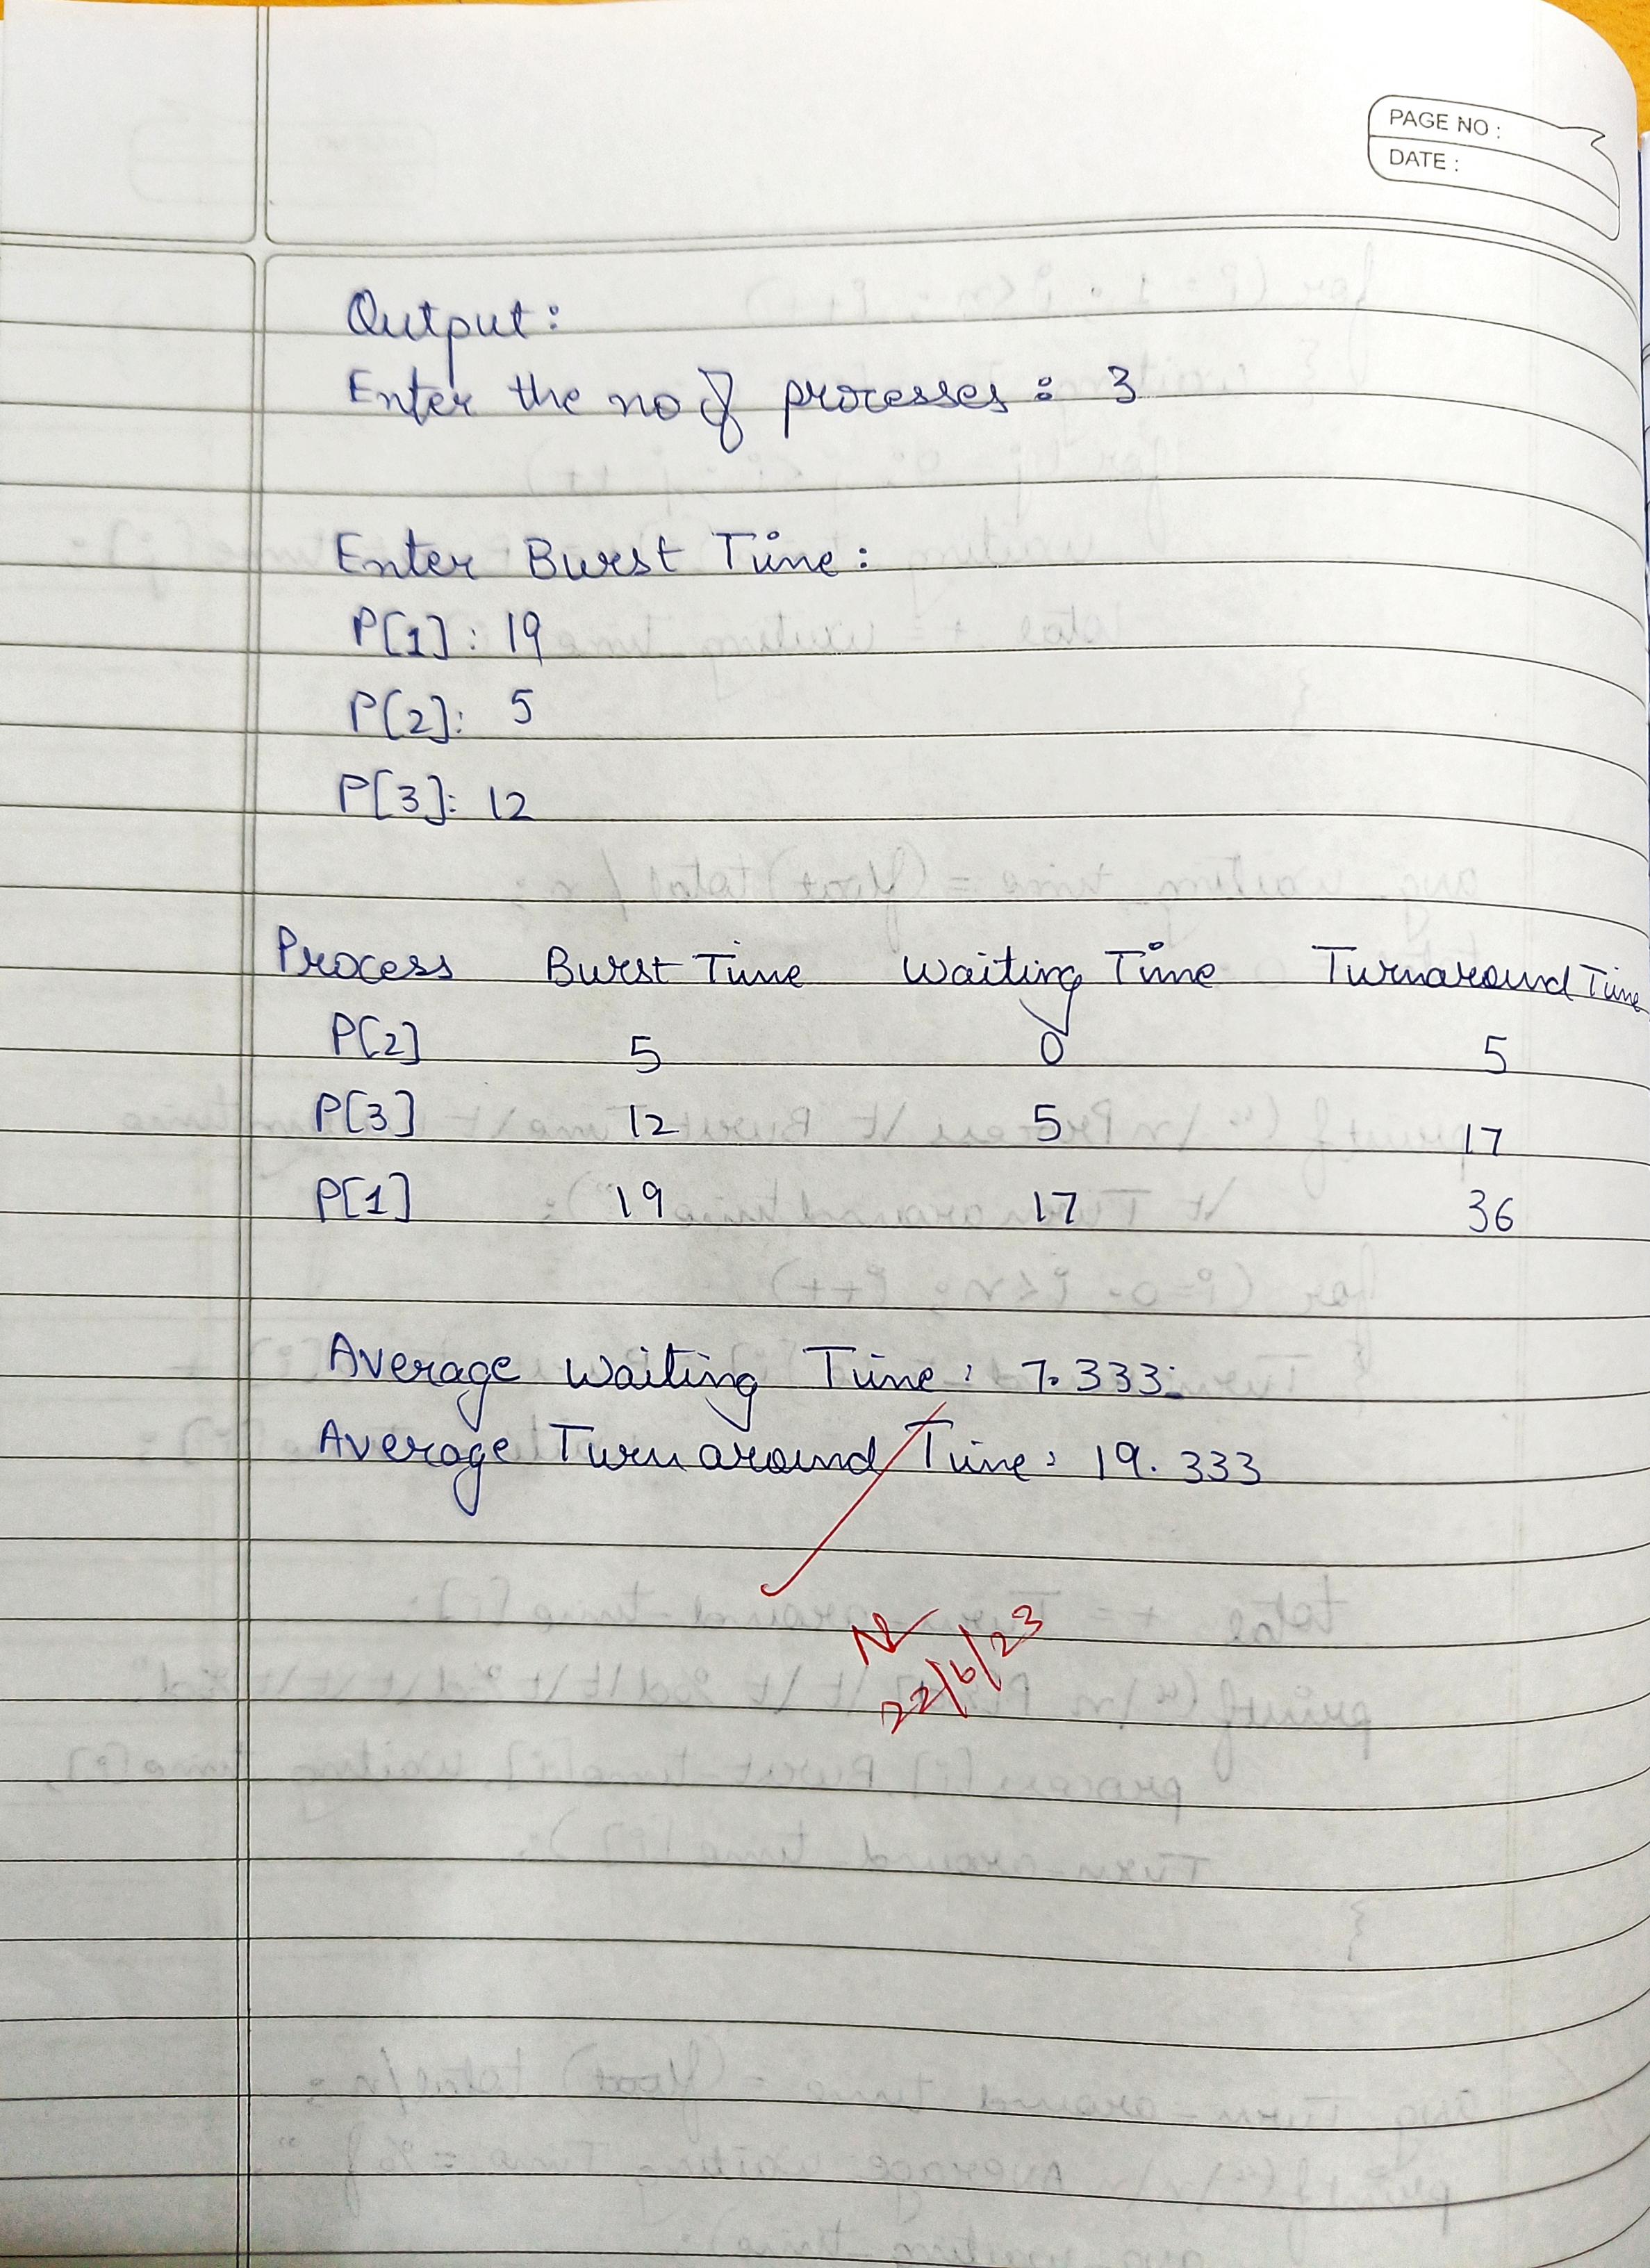 PAGE NO :
DATE :
Output:
Enter the no of processes : 3
Enter Burst Time :
P[1] : 19
P[2] : 5
P[3] : 12
Process Burst Time Waiting Time Turnaround Time
P[2] 5 0 5
P[3] 12 5 17
P[1] 19 17 36
Average Waiting Time : 7.333
Average Turnaround Time : 19.333
22/6/23